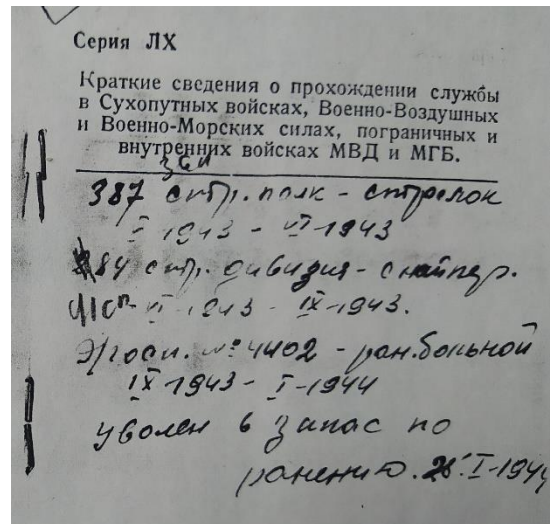 Серия ЛХ
Краткие сведения о прохождении службы
в Сухопутных войсках, Военно-Воздушных
и Военно-Морских силах, пограничных и
внутренних войсках МВД и МГБ.
387 стр. полк - стрелок
I-1943 - VI-1943
84 стр. дивизия - снайпер.
VI-1943 - IX-1943.
Эгосп. № 4402 - ран. больной
IX-1943 - I-1944
уволен в запас по
ранению. 28. I-1944